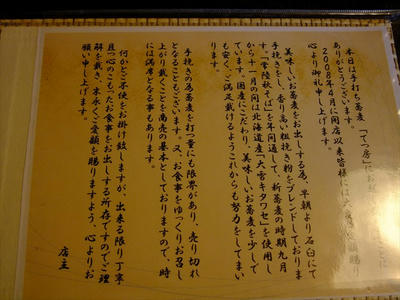 本日は手打ち蕎麦「てっ房」にお
ありがとうございます。
2008年4月に開店以来皆様には 愛顧賜り
心より御礼申し上げます。
美味しいお蕎麦をお出しする為、早朝より石臼にて
手挽きをし、香り高い粗挽き粉をブレンドしておりま
す。「常陸秋そば」を年間通して、新蕎麦の時期九月
から十一月の間は北海道産「大雪キタワセ」を使用し
ています。国産にこだわり、美味しいお蕎麦を少しで
も安く、ご満足戴けるようこれからも努力をしてまい
手挽きの為蕎麦を打つ量にも限界があり、売り切れ
となることもございます。又、お食事をゆっくりお召し
上がり戴くことを商売の基本としておりますので、時
には満席となる事もあります。
何かとご不便をお掛け致しますが、出来る限り丁寧
且つ心のこもったお食事をお出しする所存ですのでご理
解を戴き、末永くご愛顧を賜りますよう、心よりお
願い申し上げます。
店主